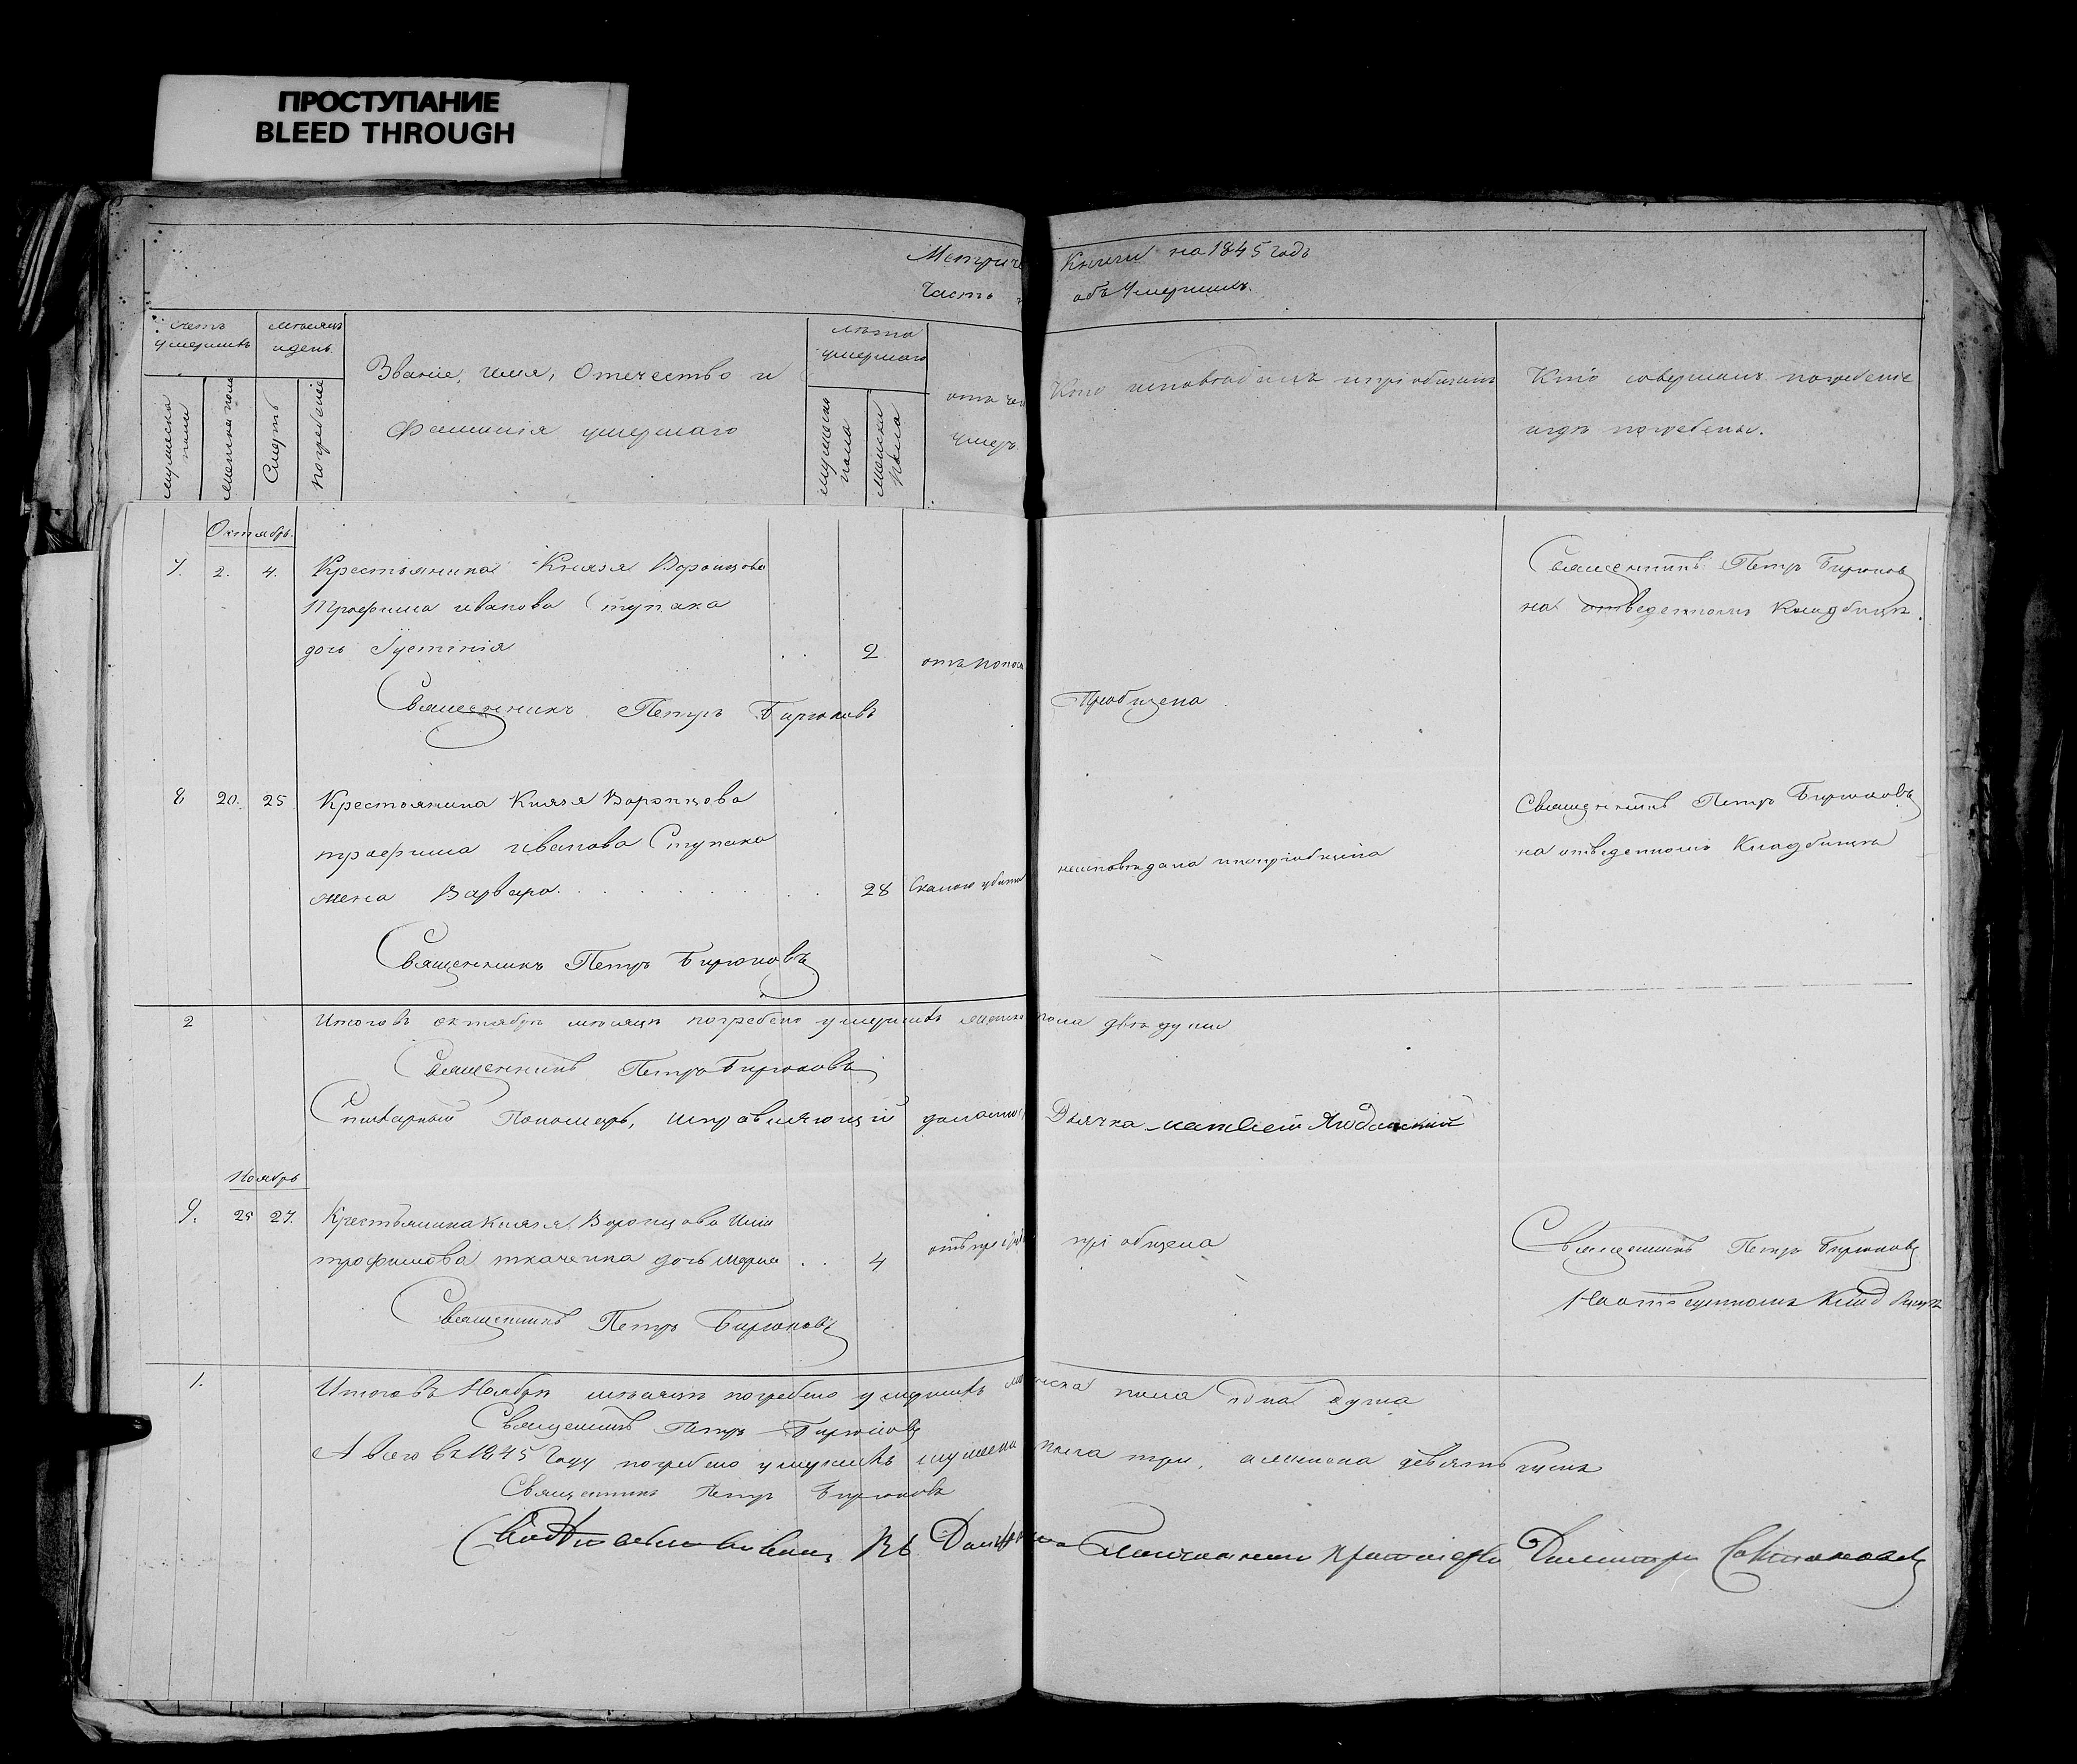 ПРОСТУПАНИЕ
BLEED THROUGH
Метриче Книги на 1845 годъ
Часть объ Умершихъ.
счетъ умершихъ
мѣсяцъ и день
Званіе, имя, Отечество и
фамилія умершаго
лѣта умершаго
мужеска пола
женска пола
Смерть
погребенія
мужеска пола
женска пола
отъ чего
умеръ
Кто исповѣдалъ и пріобщалъ
Кто совершалъ погребеніе
и гдѣ погребены.
Октябрь.
7. 2. 4. Крестьянина Князя Воронцова
Трофима иванова Ступака
дочь Іустинія . . 2 отъ
Священникъ Петръ Бирюковъ
Пріобщена
Священникъ Петръ Бирюковъ
на отведенномъ Кладбищѣ.
8 20. 25 Крестьянина Князя Воронцова
трофима иванова Ступака
жена Варвара. 28 Скалою убита
неисповѣдана и непріобщена
Священникъ Петръ Бирюковъ
Священникъ Петръ Бирюковъ
на отведенномъ Кладбищѣ
2 Итого въ октябрѣ мѣсяцѣ погребено умершихъ женска пола двѣ души
Священникъ Петръ Бирюковъ
Пономарь, исправляющій должность Дьячка
Ноябрь
9. 25 27. Крестьянина Князя Воронцова
трофимова ткаченка дочь Марія . . 4
пріобщена
Священникъ Петръ Бирюковъ
Священникъ Петръ Бирюковъ
На отведенномъ Кладбищѣ
1. Итого въ Ноябрѣ мѣсяцѣ погребено умершихъ женска пола одна душа
Священникъ Петръ Бирюковъ
А всего въ 1845 Году погребено умершихъ мужеска пола три, а женска девять душъ
Священникъ Петръ Бирюковъ